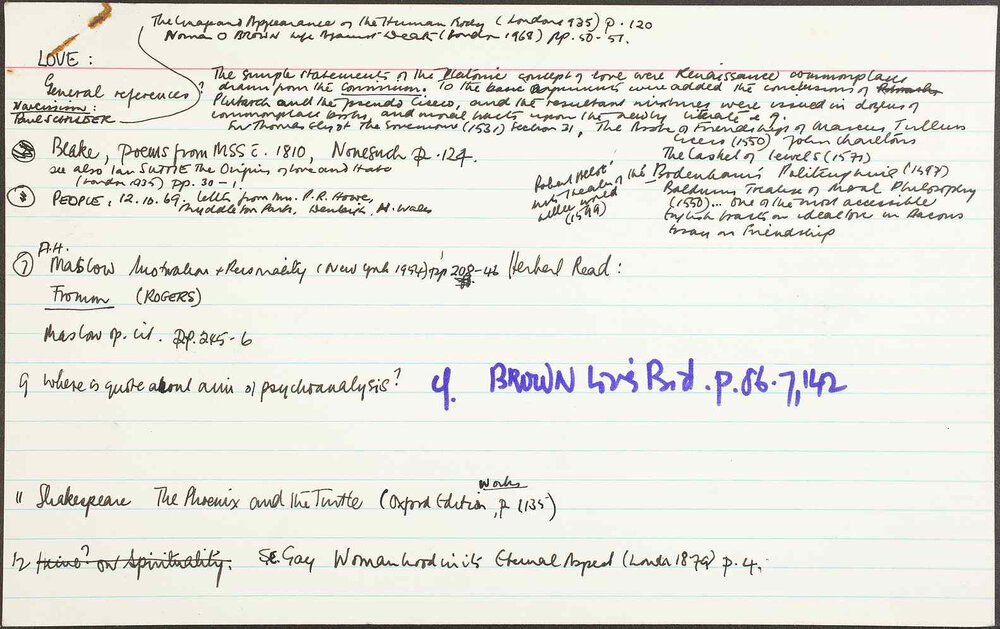 The Image and Appearance of the Human Body (London 1935) p. 120
Norman O BROWN Life Against Death (London 1968) pp. 50-51.
LOVE:
General references?
Narcissism:
Paul SCHILDER
The simple statements of the Platonic concept of love were Renaissance commonplaces
drawn from the Convivium. To the basic arguments were added the conclusions of
Plutarch and the pseudo Cicero, and the resultant mixtures were issued in dozens of
commonplace books and moral tracts upon the newly literate e.g.
Sir Thomas Elyot The Governour (1531) Section 31, The Booke of Friendship of Marcus Tullius
Cicero (1550) John Charlton's
The Casket of Jewels (1571)
Robert Allot's Wits Theater of the little world (1599)
Bodenham's Politeuphuia (1597)
Baldwin's Treatise of Moral Philosophy
(1550)... One of the most accessible
English tracts on ideal love is Bacon's
Essay on Friendship
Blake, poems from MSS c. 1810, Nonesuch p. 124.
see also Ian SUTTIE The Origins of Love and Hate
(London 1935) pp. 30-1
PEOPLE, 12.10.69, letter from Mrs. P.R. Howe,
Myddleton Park, Denbigh, N. Wales
A.H.
7 Maslow Motivation & Personality (New York 1954) pp 208-46 Herbert Read:
Fromm (ROGERS)
Maslow op. cit. pp. 245-6
9 Where is quote about aim of psychoanalysis? cf. BROWN Love's Bod. p. 86-7, 142
11 Shakespeare The Phoenix and the Turtle (Oxford Edition Works, p 1135)
12 Heine? on Spirituality. S.E. Gay Womanhood in its Eternal Aspect (London 1879) p. 4.